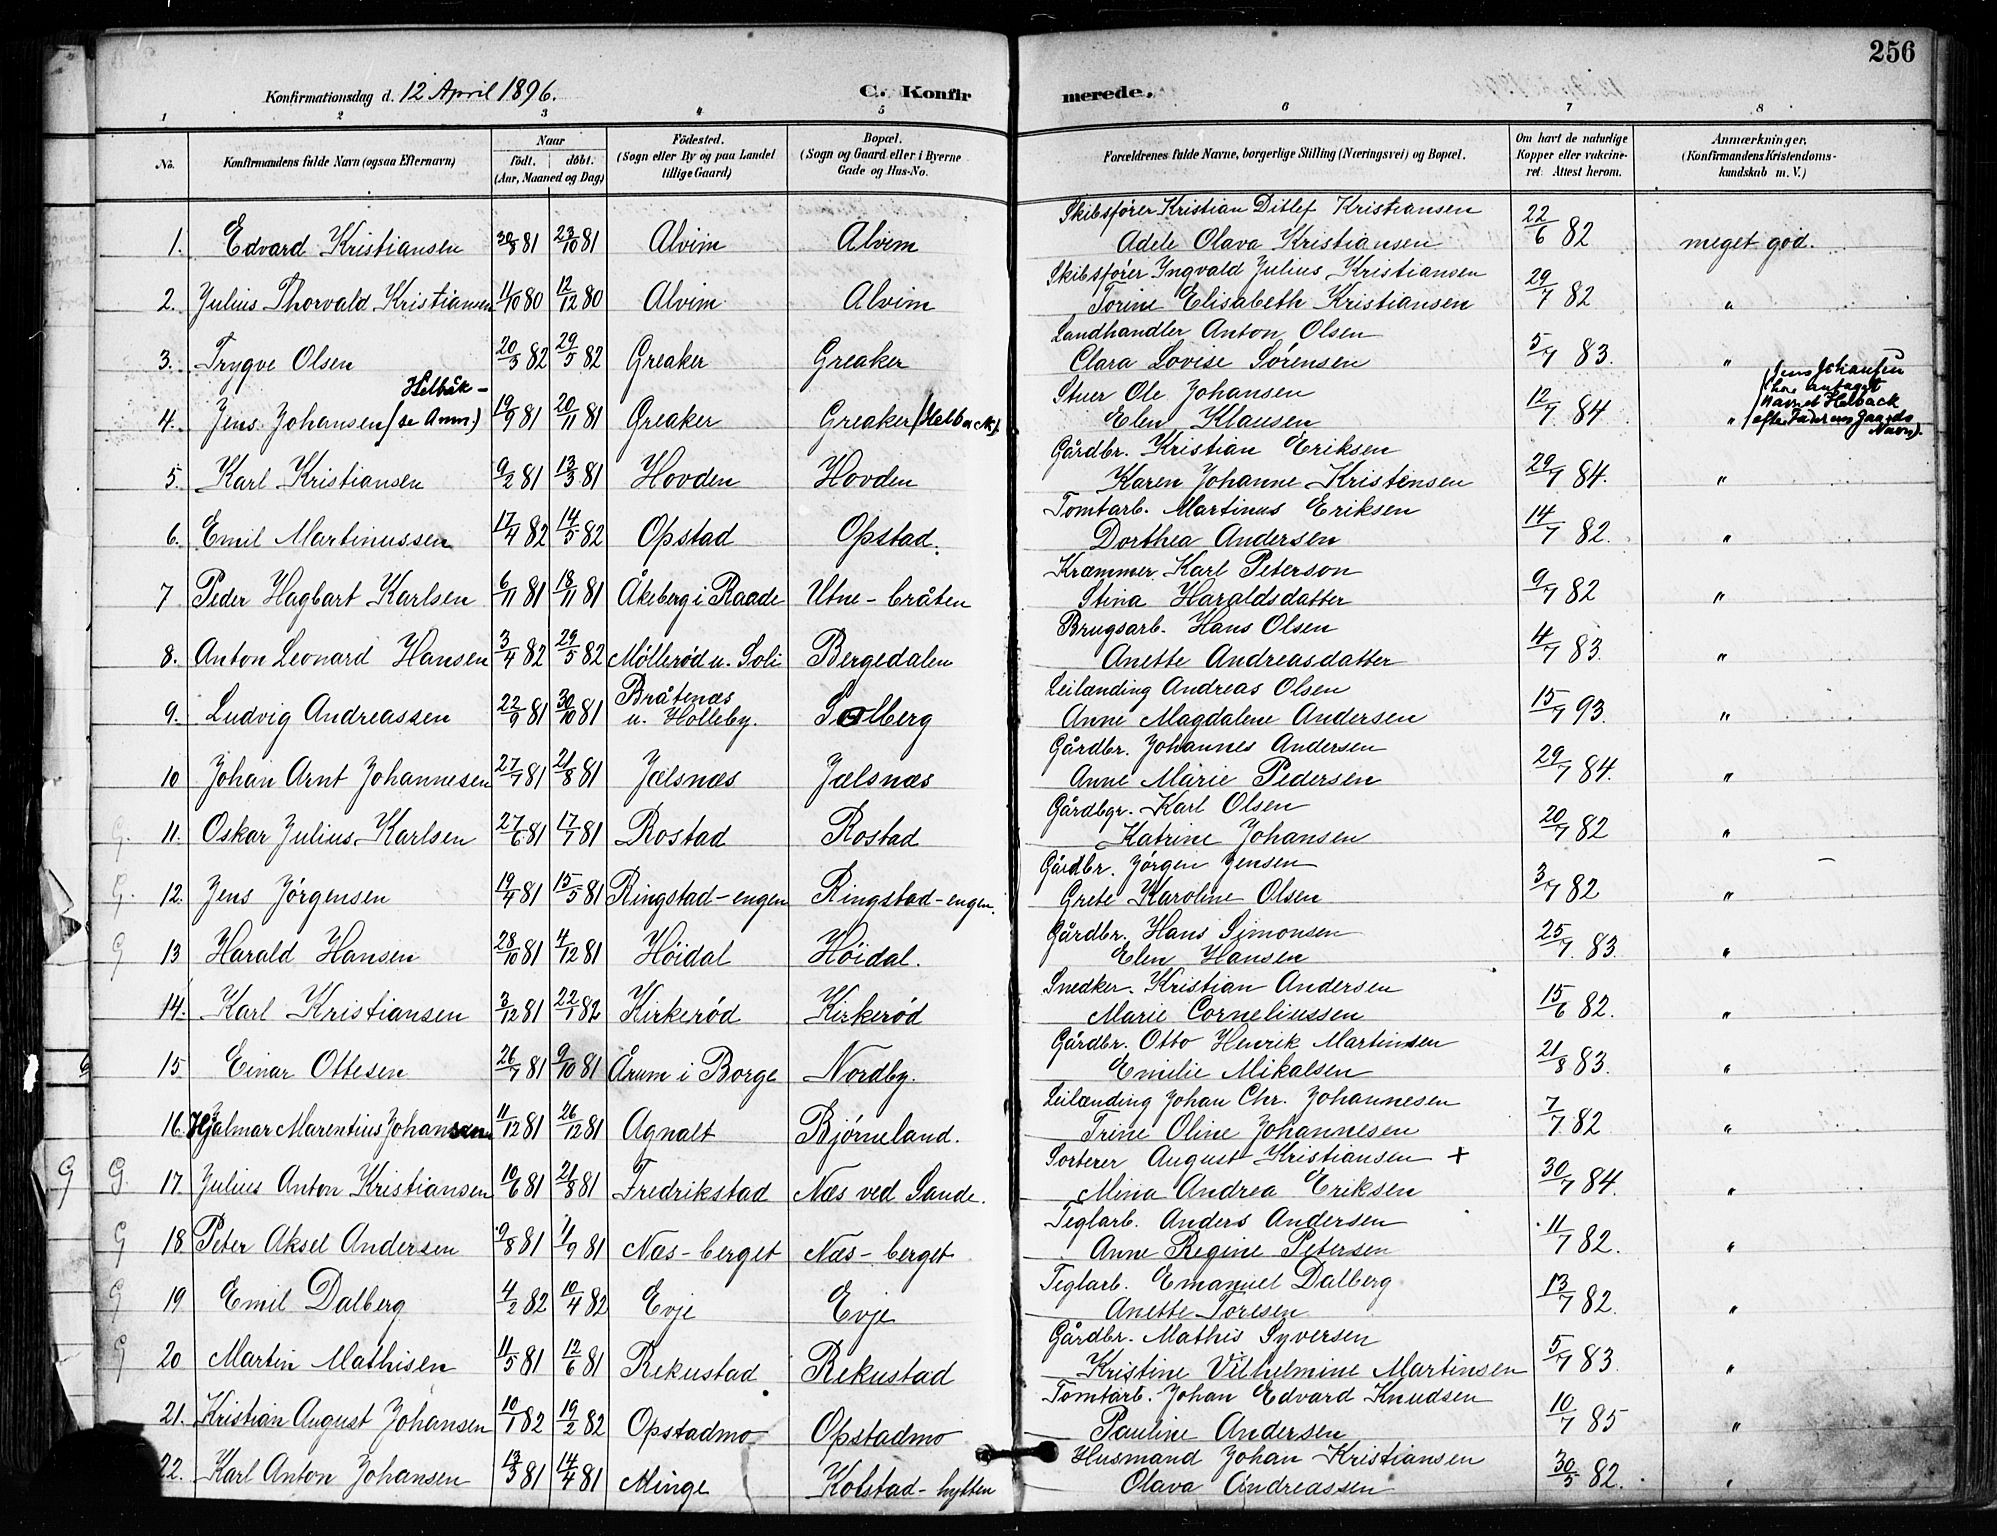 256
Konfirmationsdag d. 12 April 1896.
C. Konfirmerede.
1 2 3 4 5 6 7 8
No. | Konfirmandens fulde Navn (ogsaa Efternavn) | Naar födt. döbt. (Aar, Maaned og Dag) | Födested. (Sogn eller By og paa Landet tillige Gaard) | Bopæl. (Sogn og Gaard eller i Byerne Gade og Hus-No. | Forældrenes fulde Navne, borgerlige Stilling (Næringsvei) og Bopæl. | Om havt de naturlige Kopper eller vakcineret. Attest herom. | Anmærkninger, (Konfirmandens Kristendomskundskab m. V.)
1. Edvard Kristiansen 30/8 81 23/10 81 Alvim Alvim Skibsfører Kristian Ditlef Kristiansen
Adele Olava Kristiansen 22/6 82 meget god.
2. Julius Thorvald Kristiansen 11/10 80 12/12 80 Alvim Alvim Skibsfører Yngvald Julius Kristiansen
Torine Elisabeth Kristiansen 29/7 82 "
3. Trygve Olsen 20/3 82 29/5 82 Greaker Greaker Landhandler Anton Olsen
Clara Lovise Sørensen 5/7 83. "
4. Jens Johansen Helbæk- (se Anm.) 19/9 81 20/11 81 Greaker Greaker (Helback). Stuer Ole Johansen
Elen Klausen 12/7 84. " (Jens Johansen
har antaget
Navnet Helback
efter Faderens Gaards
Navn).
5. Karl Kristiansen 9/2 81 13/3 81 Hovden Hovden Gårdbr. Kristian Eriksen
Karen Johanne Kristensen 29/7 84. "
6. Emil Martinussen 17/4 82 14/5 82 Opstad Opstad. Tomtarb. Martinus Eriksen
Dorthea Andersen 14/7 82. "
7 Peder Hagbart Karlsen 6/11 81 18/11 81 Åkeberg i Raade Utne-bråten Kræmmer Karl Peterson
Stina Haraldsdatter 9/7 82 "
8. Anton Leonard Hansen 3/4 82 29/5 82 Møllerød u. Soli Bergedalen Brugsarb. Hans Olsen
Anette Andreasdatter 4/7 83. "
9. Ludvig Andreassen 22/9 81 30/10 81 Bråtenæs u. Holleby. Solberg Leilænding Andreas Olsen
Anne Magdalene Andersen 15/7 93. "
10 Johan Arnt Johannesen 27/7 81 21/8 81 Jælsnæs Jælsnæs Gårdbr. Johannes Andersen
Anne Marie Pedersen 29/7 84. "
G. 11. Oskar Julius Karlsen 27/6 81 17/7 81 Rostad Rostad Gårdbgr. Karl Olsen
Katrine Johansen 20/7 82 "
G. 12. Jens Jørgensen 19/4 81 15/5 81 Ringstad-engen Ringstad-engen. Gårdbr. Jørgen Jensen
Grete Karoline Olsen 3/7 82 "
G 13 Harald Hansen 28/10 81 4/12 81 Høidal Høidal. Gårdbr. Hans Simonsen
Elen Hansen 25/7 83. "
14. Karl Kristiansen 3/12 81 22/1 82 Kirkerød Kirkerød Snedker. Kristian Andersen
Marie Corneliussen 15/6 82. "
15 Einar Ottesen 26/7 81 9/10 81 Årum i Borge Nordby. Gårdbr. Otto Henrik Martinsen
Emilie Mikalsen 21/8 83. "
16. Hjalmar Marentius Johansen 11/12 81 26/12 81 Agnalt Bjørneland. Leilænding Johan Chr. Johannesen
Trine Oline Johannesen 7/7 82. "
G G 17. Julius Anton Kristiansen 10/6 81 21/8 81 Fredrikstad Næs ved Sande. Sorterer August Kristiansen +
Mina Andrea Eriksen 30/7 84. "
G 18. Peter Aksel Andersen 9/8 81 11/9 81 Næs-berget Næs-berget Teglarb. Anders Andersen
Anne Regine Petersen 11/7 82. "
G 19 Emil Dalberg 4/2 82 10/4 82 Evje Evje Teglarb. Emanuel Dalberg
Anette Toresen 13/7 82. "
G 20 Martin Mathisen 11/5 81 12/6 81 Rekustad Rekustad Gårdbr. Mathis Syversen
Kristine Vilhelmine Martinsen 5/7 83. "
21. Kristian August Johansen 10/1 82 19/2 82 Opstadmo Opstadmo Tomtarb. Johan Edvard Knudsen
Pauline Andersen 10/7 85 "
22. Karl Anton Johansen 13/3 81 14/4 81 Minge Kolstad-hytten Husmand Johan Kristiansen
Olava Andreassen 30/5 82. "